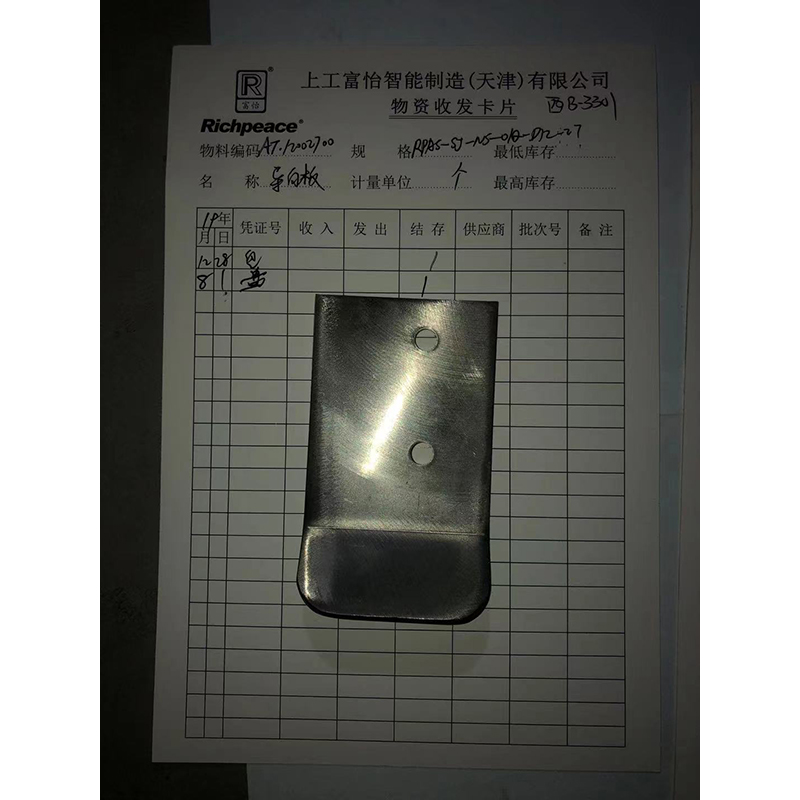 R®
富怡
Richpeace®
上工富怡智能制造(天津)有限公司
物资收发卡片 西B-3301
物料编码 AT.12002700 规格 最低库存
名称 导向板 计量单位 个 最高库存
19年
月 日 凭证号 收入 发出 结存 供应商 批次号 备注
12 28 1
8 1 盘 1